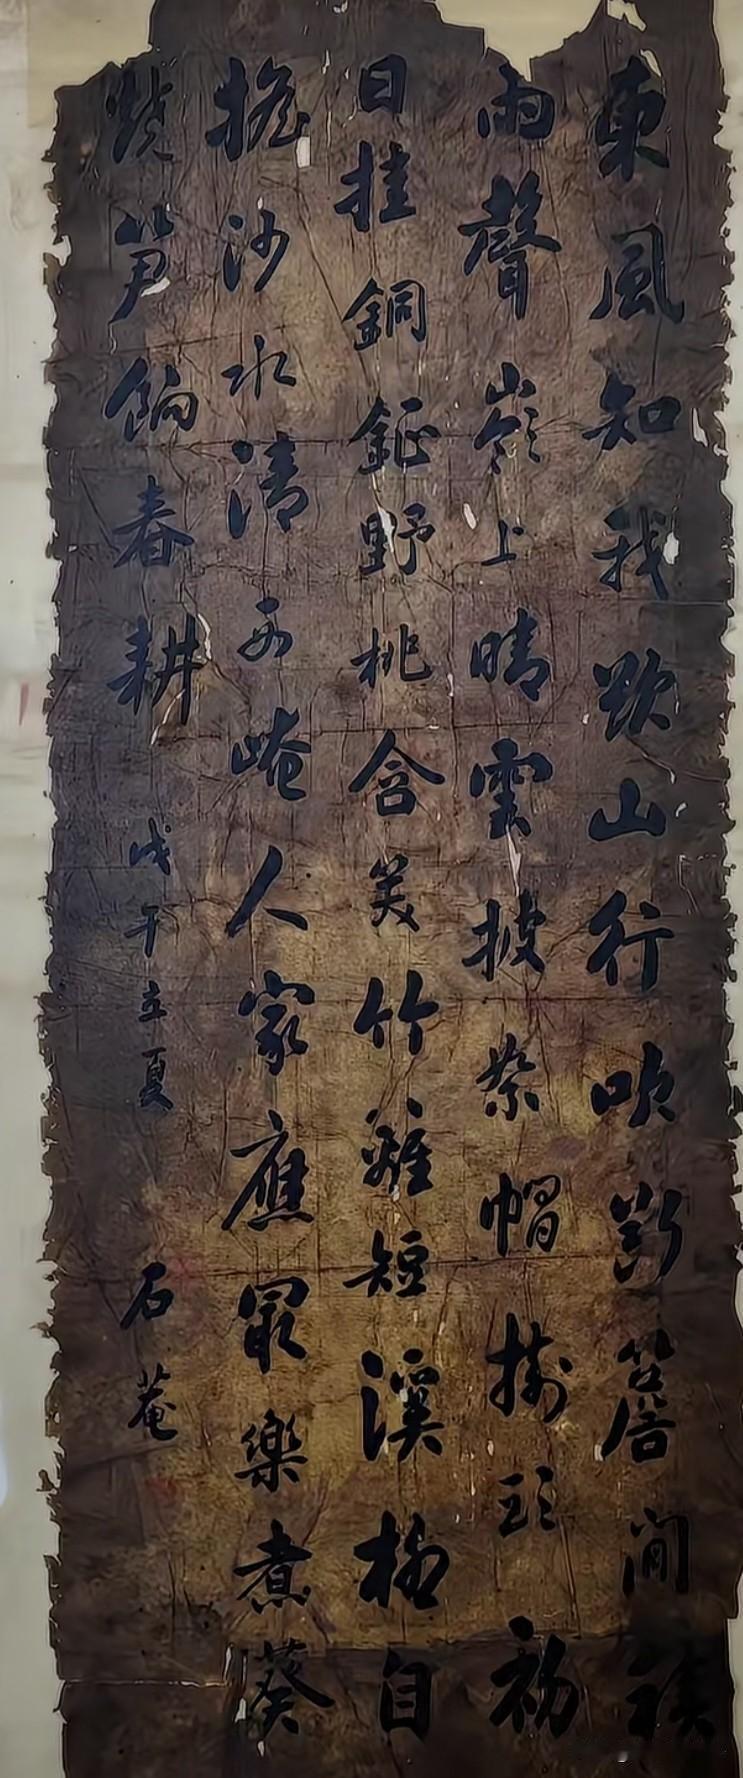 東風知我欲山行吹斷簷間積
雨聲嶺上晴雲披絮帽樹頭初
日挂銅鉦野桃含笑竹籬短溪柳自
搖沙水清西崦人家應冣樂煮葵
燒笋餉春耕
戊午立夏 石菴